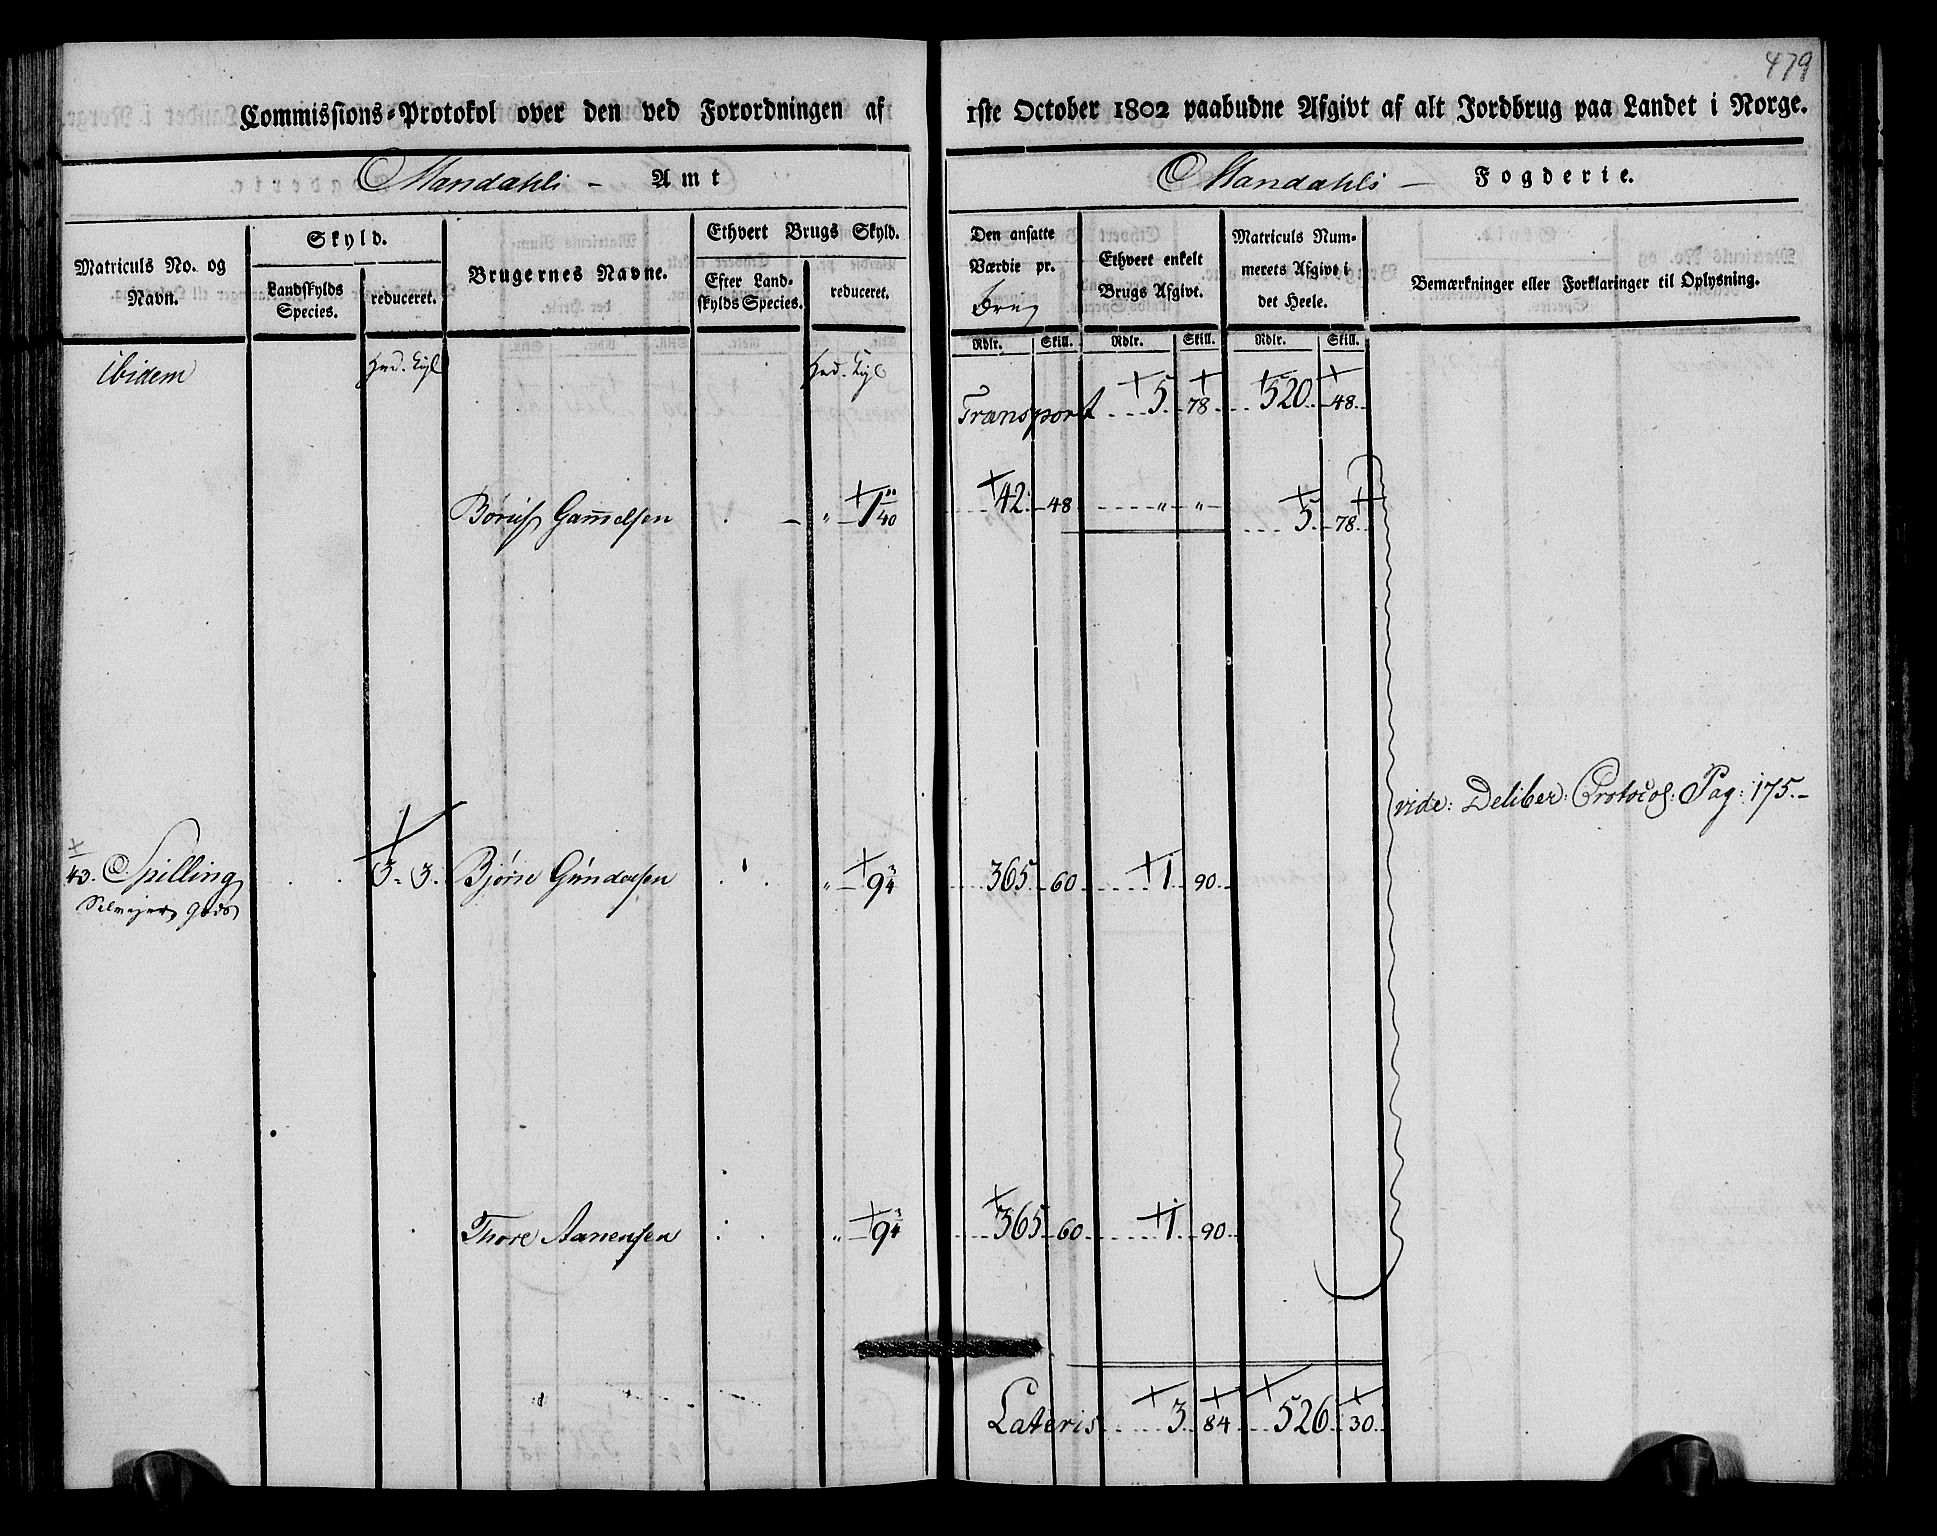 479
Commissions-Protokol over den ved Forordningen af 1ste October 1802 paabudne Afgivt af alt Jordbrug paa Landet i Norge.
Mandahls - Amt
Mandahls - Fogderie.
Matriculs No. og Navn.
Skyld.
Landskylds Species.
reduceret.
Brugernes Navne.
Ethvert Brugs Skyld.
Efter Landskylds Species.
reduceret.
Den ansatte Værdie pr.
Ethvert enkelt Brugs Afgivt.
Matriculs Nummerets Afgivt i det Heele.
Bemærkninger eller Forklaringer til Oplysning.
Rdlr. Skill. Rdlr. Skill. Rdlr. Skill.
ibidem
Transport 5. 78. 520. 48.
Gammelsen " 1 42. 48 " " 5. 78.
vide: Deliber: Protocol: Pag: 175.-
43. Spilling 3. 3. Bjørne Gundersen " 9 3/4 365. 60 1. 90.
Thore Aanensen " 9 3/4 365. 60. 1. 90.
Lateris 3. 84 526. 30.